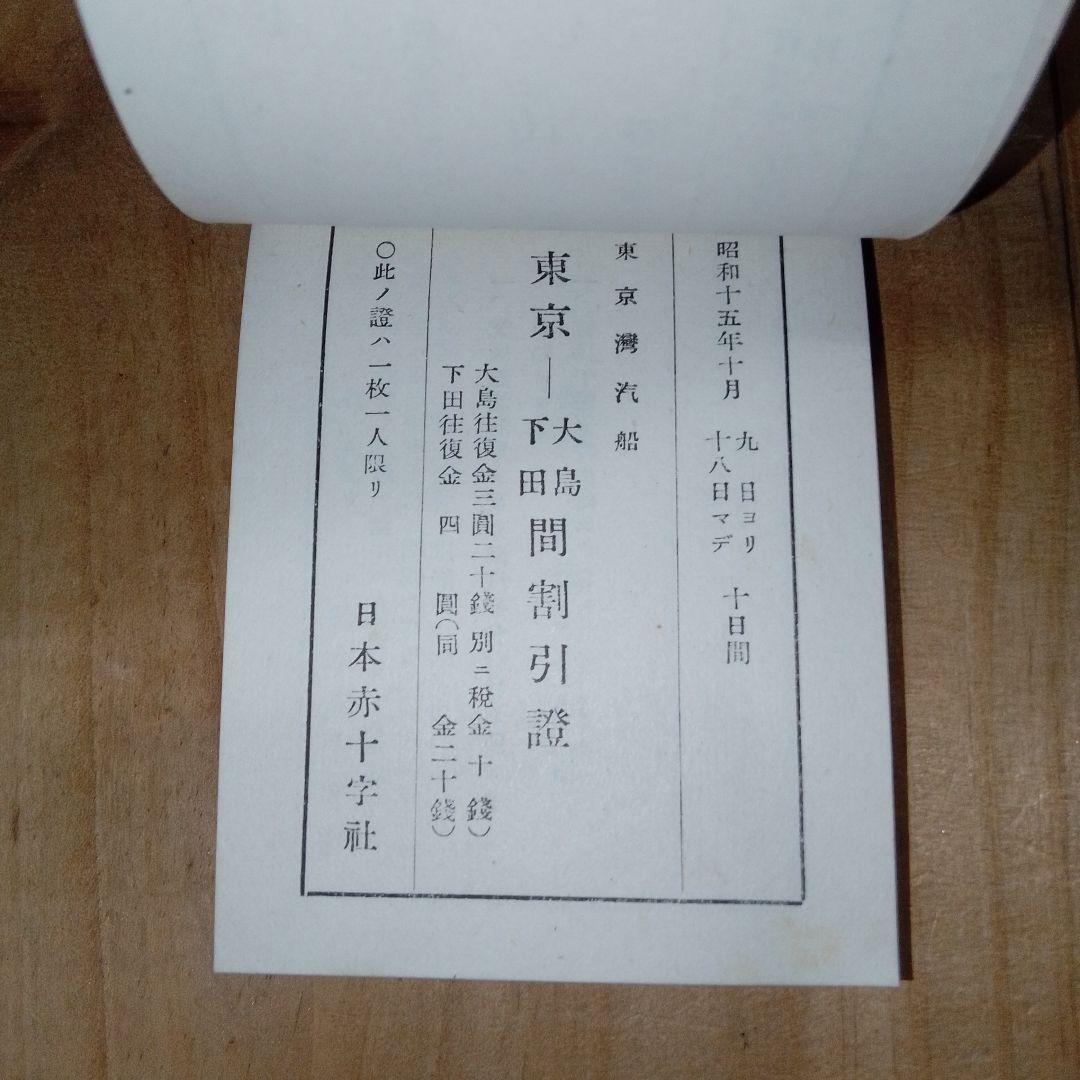 昭和十五年十月 九日ヨリ 十八日マデ 十日間
東京灣汽船
東京―大島下田間割引證
大島往復金三圓二十錢 別ニ税金十錢)
下田往復金 四 圓(同 金二十錢)
〇此ノ證ハ一枚一人限リ
日本赤十字社